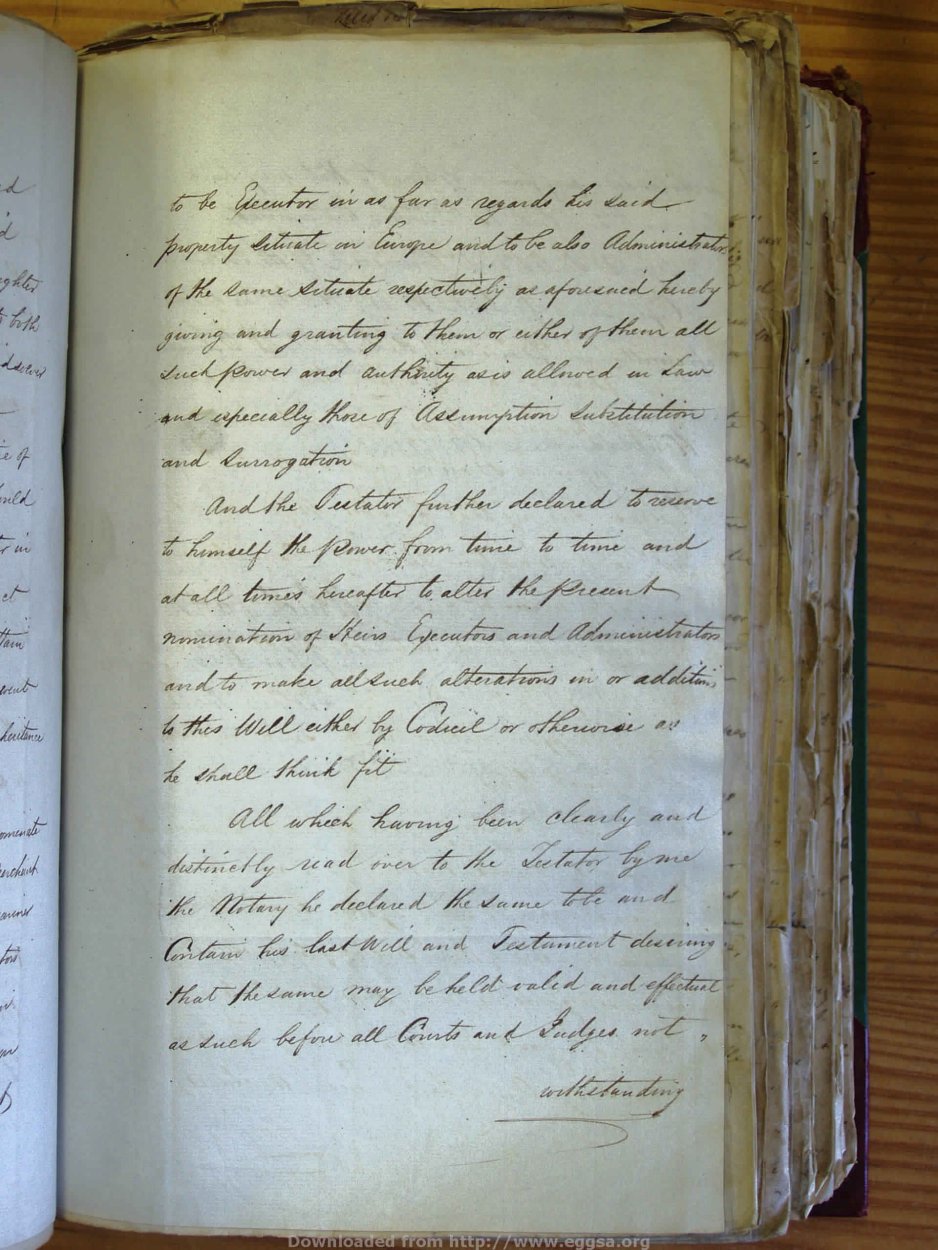 d
d
ghter
both
dsolved
e of
uld
r in
ct
tain
event
heritance
ominate
erchant
ariner
tors
to be Executor in as far as regards his said
property Situate in Europe and to be also Administrators
of the same Situate respectively as aforesaid hereby
giving and granting to them or either of them all
such Power and authority as is allowed in Law
and especially those of Assumption Substitution
and Surrogation
And the Testator further declared to reserve
to himself the Power from time to time and
at all times hereafter to alter the Present
nomination of Heirs Executors and Administrators
and to make all such alterations in or additions
to this Will either by Codicil or otherwise as
he shall think fit
All which having been clearly and
distinctly read over to the Testator by me
the Notary he declared the same to be and
Contain his last Will and Testament desiring
that the same may be held valid and effectual
as such before all Courts and Judges not „
withstanding
Downloaded from http://www.eggsa.org